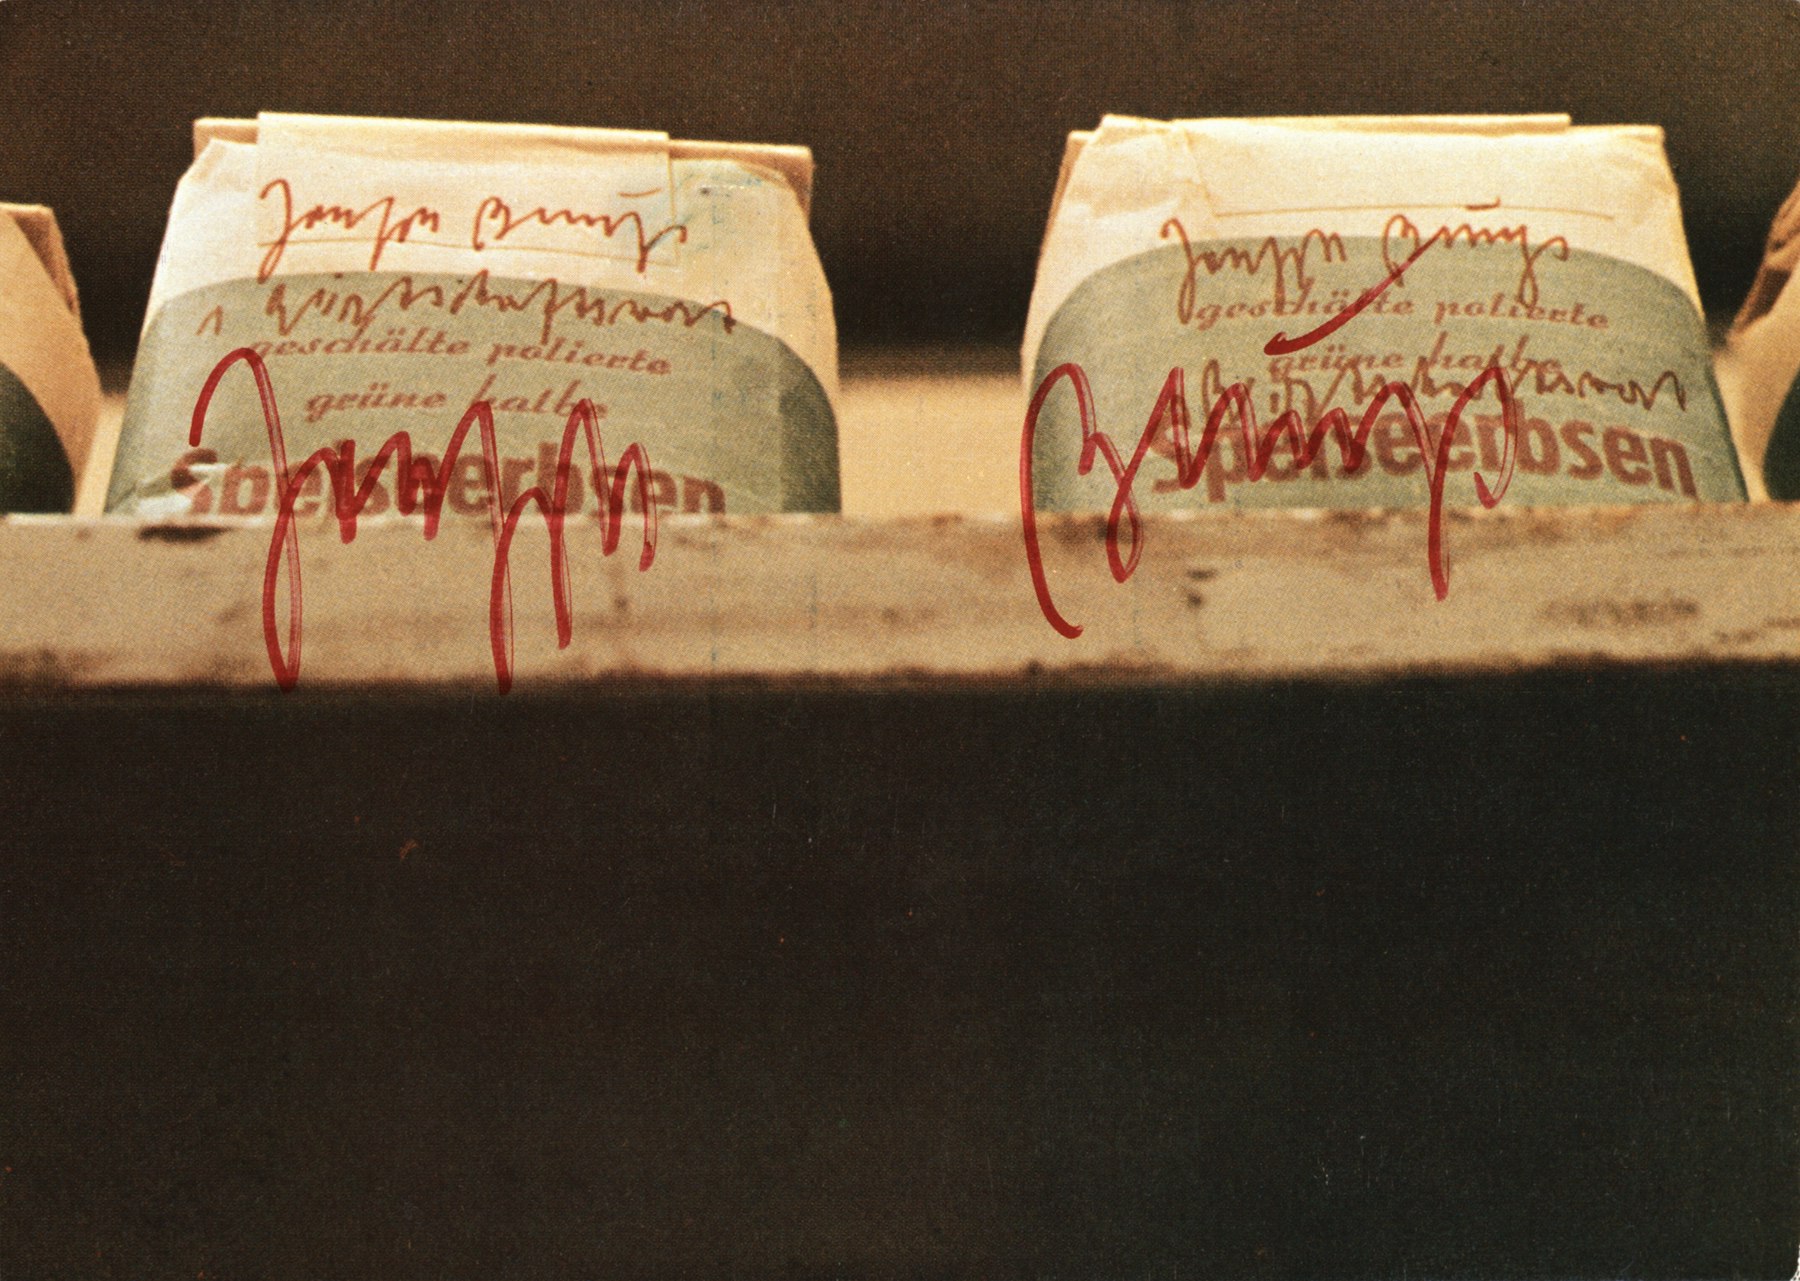 Joseph Beuys
1 Wirtschaftswert
geschälte polierte
grüne halbe
Speiseerbsen
Joseph Beuys
geschälte polierte
grüne halbe
Wirtschaftswert
Speiseerbsen
Joseph Beuys